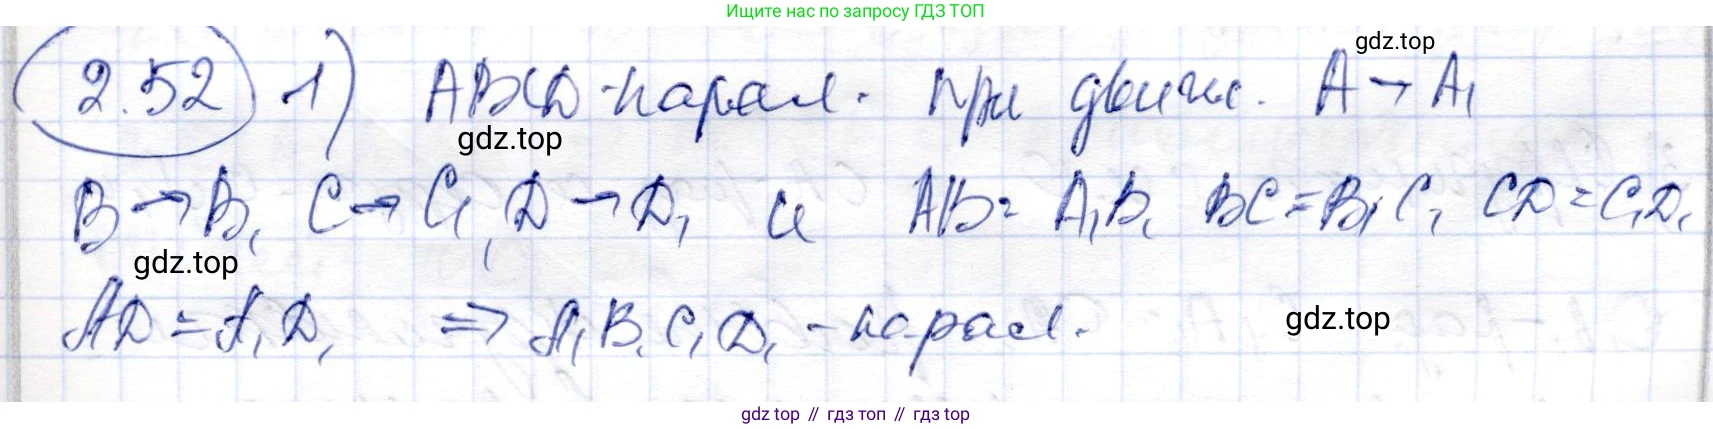 Ищите нас по запросу ГДЗ ТОП
gdz.top
2.52 1) ABCD - парал. при движ. A → A₁
gdz.top
B → B₁ C → C₁, D → D₁ и AB = A₁B₁ BC = B₁C₁ CD = C₁D₁
gdz.top
AD = A₁D₁ ⇒ A₁B₁C₁D₁ - парал.
gdz.top
gdz top // гдз топ // gdz top